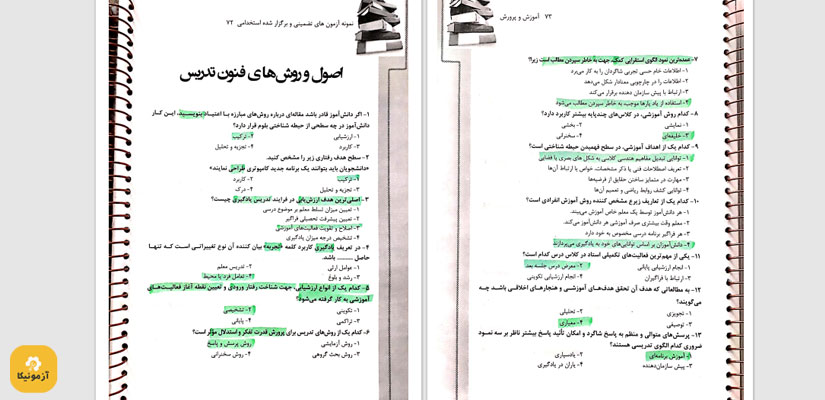 نمونه آزمون های تضمینی و برگزار شده استخدامی ۷۲
اصول و روش‌های فنون تدریس
۱- اگر دانش‌آموز قادر باشد مقاله‌ای درباره روش‌های مبارزه با اعتیاد بنویسد، این کار
دانش‌آموز در چه سطحی از حیطه شناختی بلوم قرار دارد؟
۱- ارزشیابی ۲- ترکیب
۳- کاربرد ۴- تجزیه و تحلیل
۲- سطح هدف رفتاری زیر را مشخص کنید.
«دانشجویان باید بتوانند یک برنامه جدید کامپیوتری طراحی نمایند»
۱- ترکیب ۲- کاربرد
۳- تجزیه و تحلیل ۴- درک
۳- اصلی‌ترین هدف ارزش‌یابی در فرایند تدریس یادگیری چیست؟
۱- تعیین میزان تسلط معلم بر موضوع درسی
۲- تعیین پیشرفت تحصیلی فراگیر
۳- اصلاح و تقویت فعالیت‌های آموزشی
۴- تشخیص درجه میزان یادگیری
۴- در تعریف یادگیری کاربرد کلمه «تجربه» بیان کننده آن نوع تغییراتی است که تنها
حاصل ........ باشد.
۱- عوامل ارثی ۲- تدریس معلم
۳- رشد و بلوغ ۴- تعامل فرد با محیط
۵- کدام یک از انواع ارزشیابی، جهت شناخت رفتار ورودی و تعیین نقطه آغاز فعالیت‌های
آموزشی به کار گرفته می‌شود؟
۱- تکوینی ۲- تشخیصی
۳- تراکمی ۴- پایانی
۶- کدام یک از روش‌های تدریس برای پرورش قدرت تفکر و استدلال مؤثر است؟
۱- روش آزمایشی ۲- روش پرسش و پاسخ
۳- روش بحث گروهی ۴- روش سخنرانی
۷۳ آموزش و پرورش
۷- عمده‌ترین نمود الگوی استقرایی کمک، جهت به خاطر سپردن مطالب است زیرا؟
۱- اطلاعات خام حسی تجربی شاگردان را به کار می‌برد
۲- اطلاعات را در چارچوبی معنادار شکل می‌دهد
۳- ارتباط با پیش سازمان دهنده برقرار می‌کند
۴- استفاده از یاد یارها موجب، به خاطر سپردن مطالب می‌شود
۸- کدام روش آموزشی، در کلاس‌های چندپایه بیشتر کاربرد دارد؟
۱- نمایشی ۲- بخشی
۳- خلیفه‌ای ۴- سخنرانی
۹- کدام یک از اهداف آموزشی، در سطح فهمیدن حیطه شناختی است؟
۱- توانایی تبدیل مفاهیم هندسی کلاسی به شکل های بصری یا فضایی
۲- تعریف اصطلاحات فنی با ذکر مشخصات، خواص یا ارتباط آن‌ها
۳- مهارت در متمایز ساختن حقایق از فرضیه‌ها
۴- توانایی کشف روابط ریاضی و تعمیم آن‌ها
۱۰- کدام یک از تعاریف زیرع مشخص کننده روش آموزش انفرادی است؟
۱- هر دانش‌آموز توسط یک معلم خاص آموزش می‌بیند.
۲- معلم وقت بیشتری صرف آموزش هر دانش‌آموز می‌کند.
۳- هر فراگیر برنامه درسی مخصوص به خود دارد.
۴- دانش‌آموزان بر اساس توانایی‌های خود به یادگیری می‌پردازند
۱۱- یکی از مهم‌ترین فعالیت‌های تکمیلی استاد در کلاس درس کدام است؟
۱- انجام ارزشیابی پایانی ۲- معرض درس جلسه بعد
۳- ارتباط با فراگیران ۴- انجام ارزشیابی تکوینی
۱۲- به مطالعاتی که هدف آن تحقق هدف‌های آموزشی و هنجارهای اخلاقی باشد چه
می‌گویند؟
۱- تجویزی ۲- تحلیلی
۳- توصیفی ۴- معیاری
۱۳- پرسش‌های متوالی و منظم به پاسخ شاگرد و امکان تأئید پاسخ بیشتر ناظر بر سه نمود
ضروری کدام الگوی تدریسی هستند؟
۱- آموزش برنامه‌ای ۲- یادسپاری
۳- پیش سازمان‌دهنده ۴- یاران در یادگیری
آزمونیکا